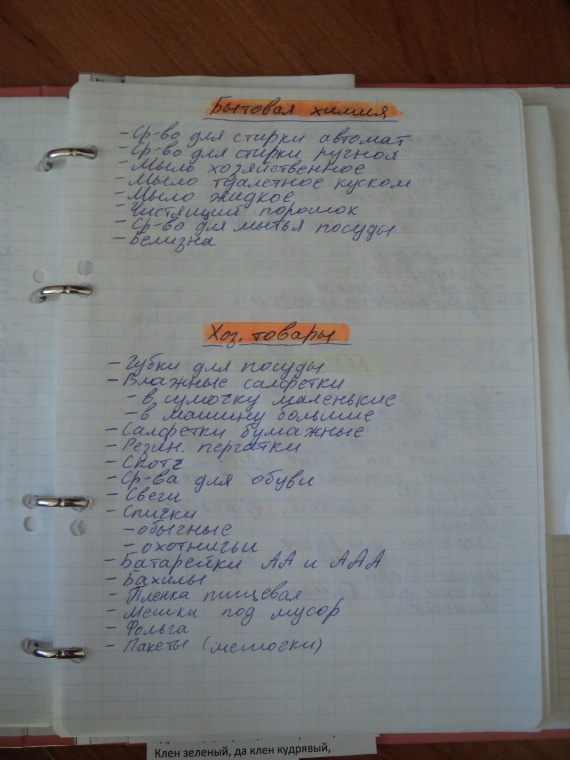 Бытовая химия
- Ср-во для стирки автомат
- Ср-во для стирки ручной
- Мыло хозяйственное
- Мыло туалетное куском
- Мыло жидкое
- Чистящий порошок
- Ср-во для мытья посуды
- Белизна
Хоз. товары
- Губки для посуды
- Влажные салфетки
- в сумочку маленькие
- в машину большие
- Салфетки бумажные
- Резин. перчатки
- Скотч
- Ср-ва для обуви
- Свечи
- Спички
- обычные
- охотничьи
- Батарейки АА и ААА
- Бахилы
- Пленка пищевая
- Мешки под мусор
- Фольга
- Пакеты (мешочки)
Клен зеленый, да клен кудрявый,